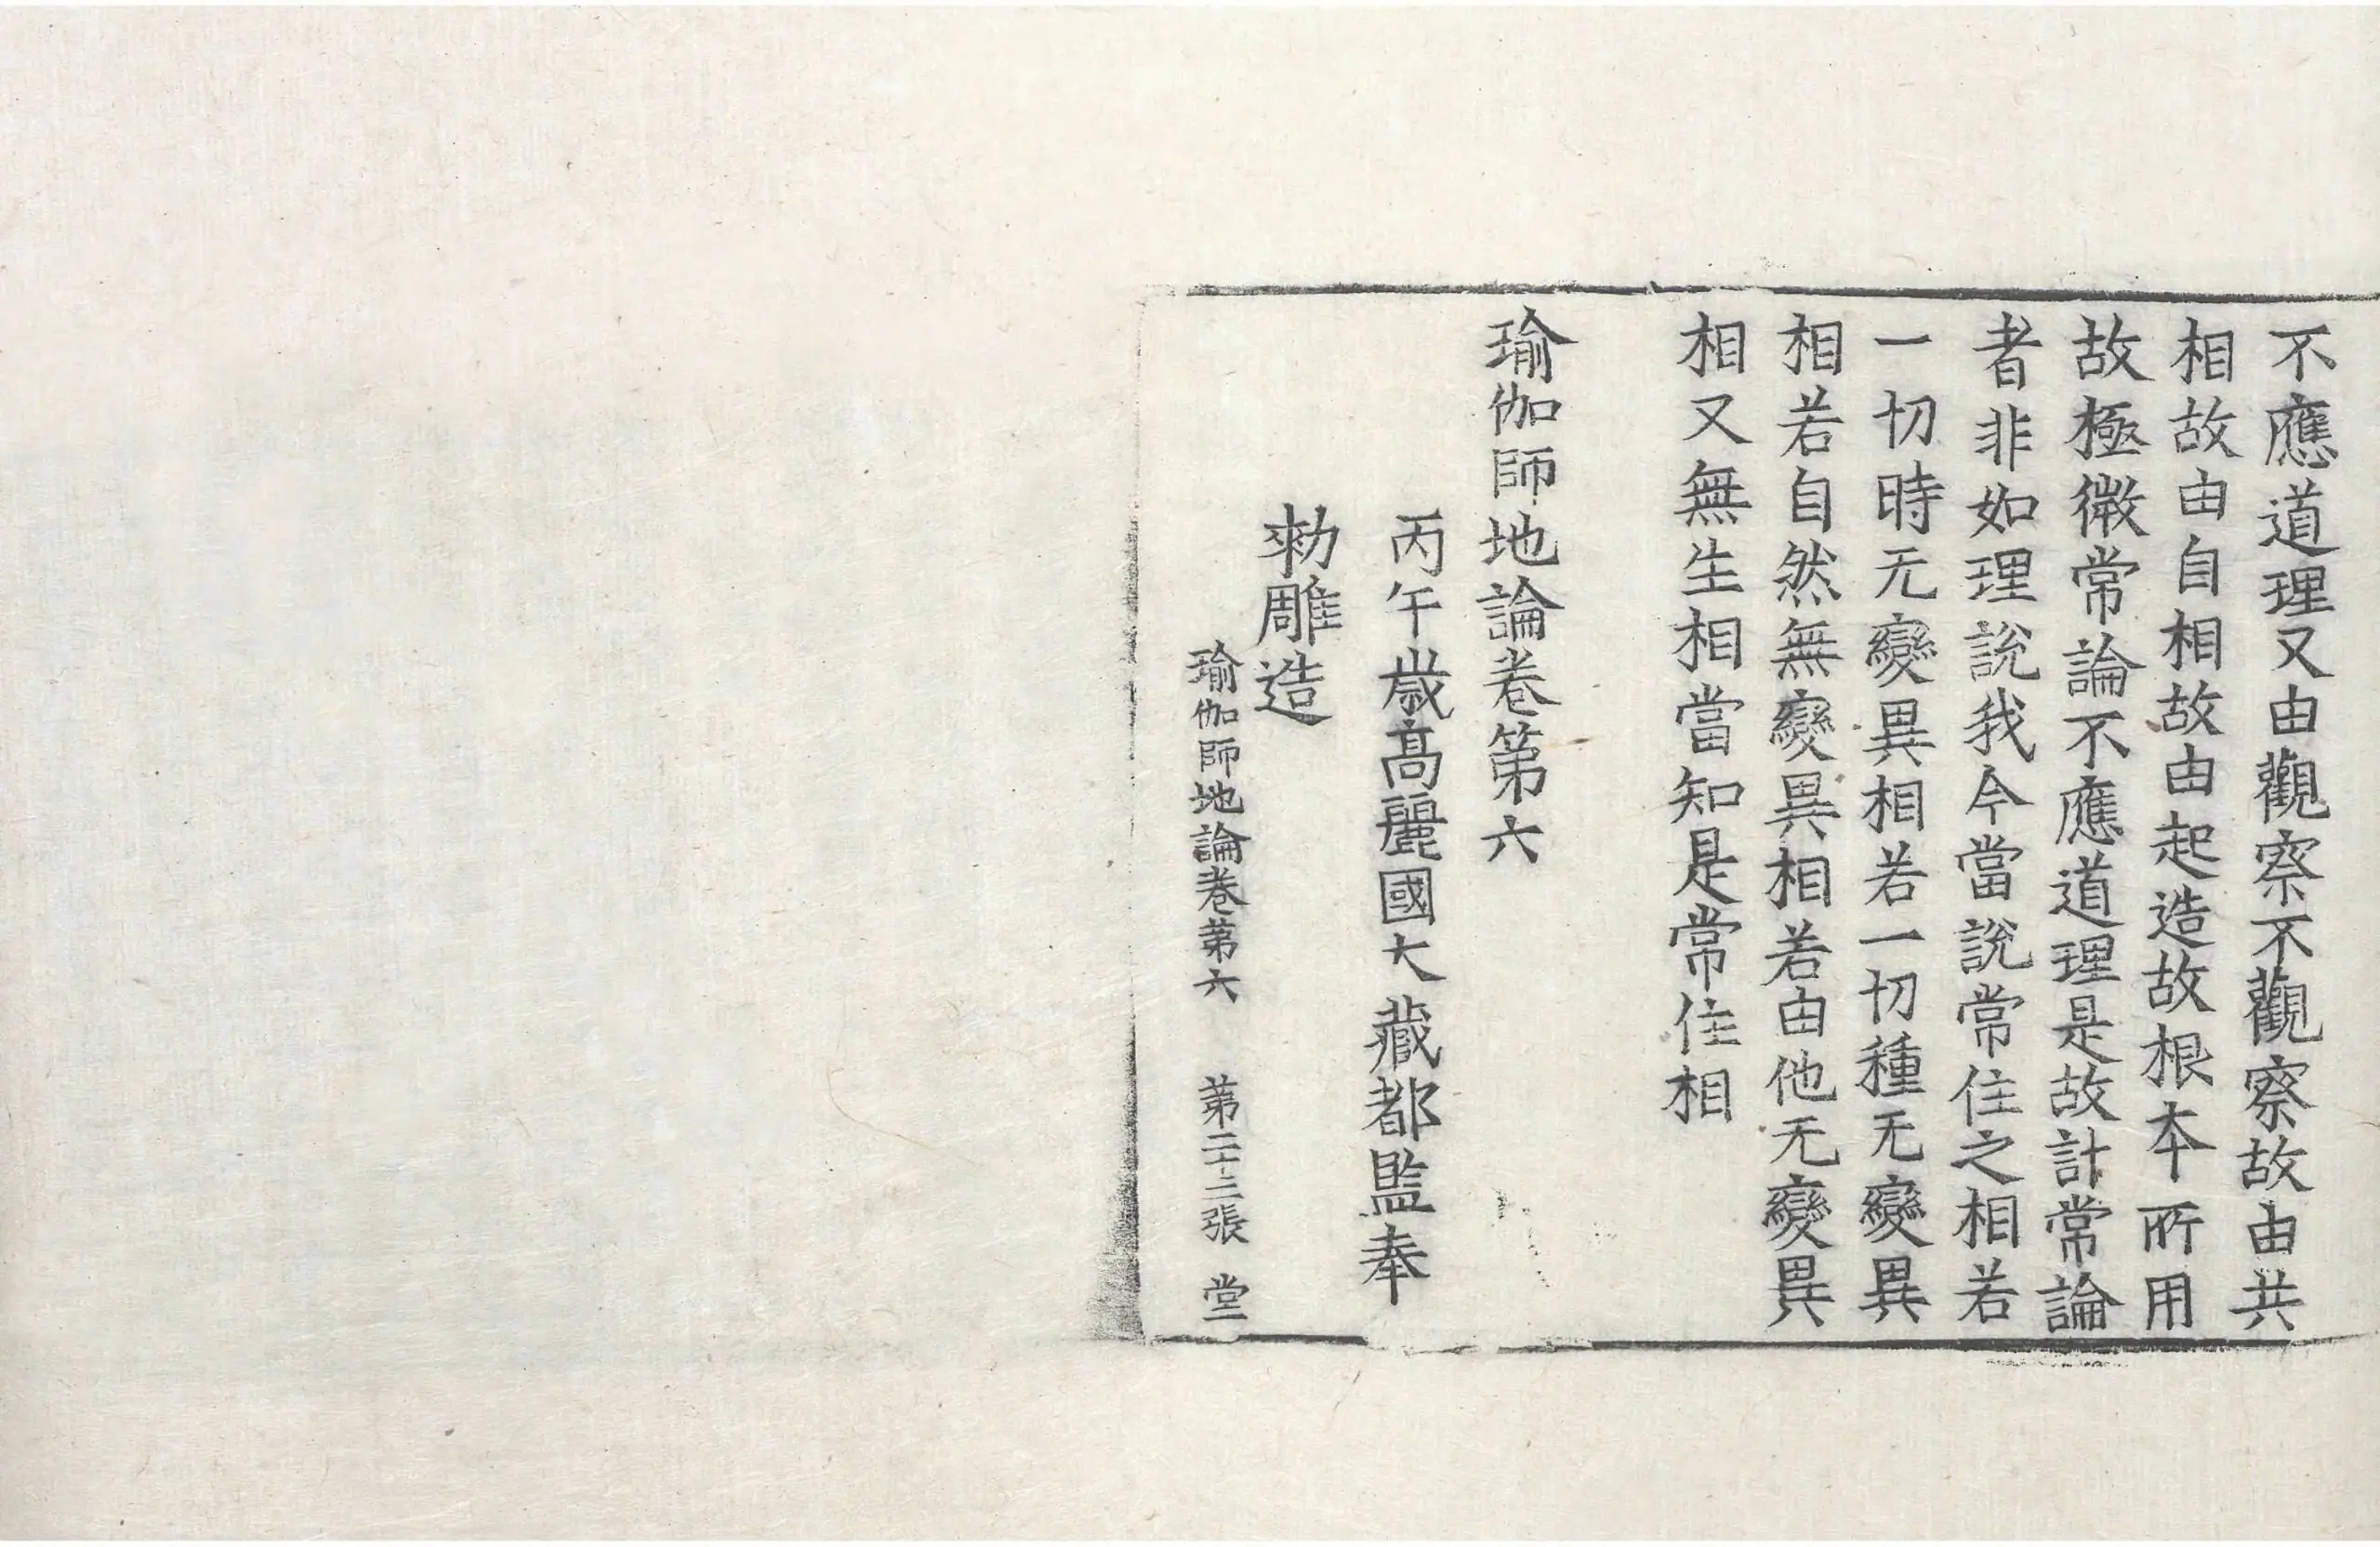 不應道理又由觀察不觀察故由共
相故由自相故由起造故根本所用
故極微常論不應道理是故計常論
者非如理說我今當說常住之相若
一切時无變異相若一切種无變異
相若自然無變異相若由他无變異
相又無生相當知是常住相
瑜伽師地論卷第六
丙午歲高麗國大藏都監奉
勑雕造
瑜伽師地論卷第六 第二十二張 堂